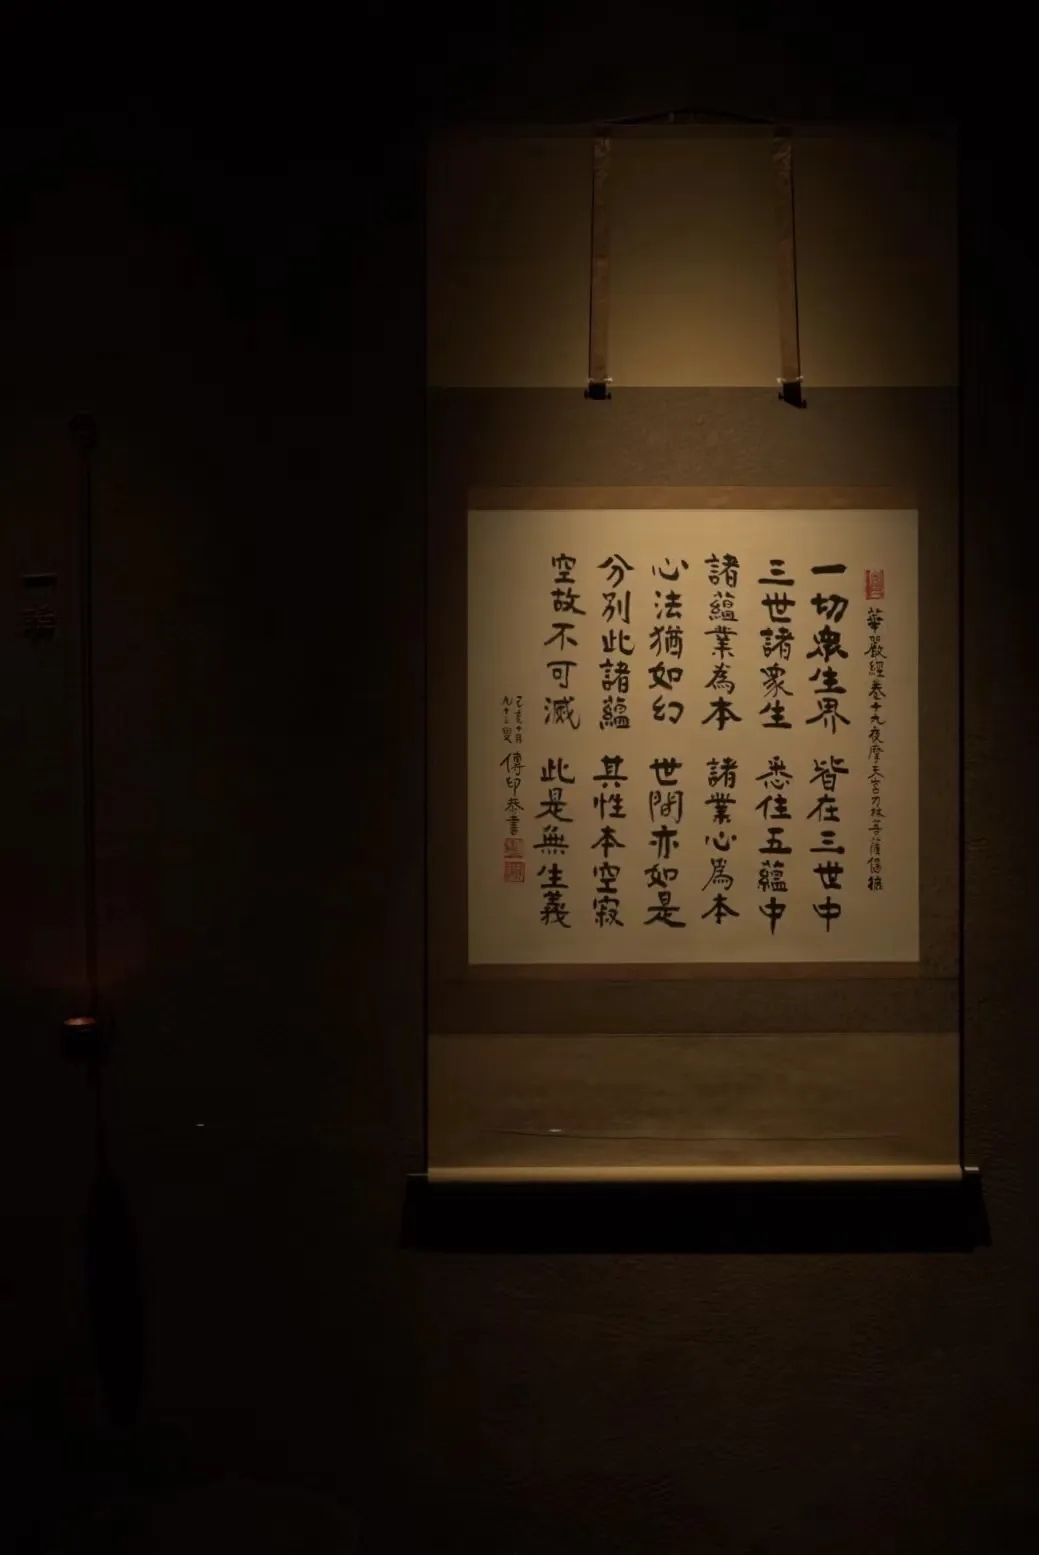 華嚴經卷十九夜摩天宮力林菩薩偈摘
一切衆生界 皆在三世中
三世諸衆生 悉住五蘊中
諸蘊業為本 諸業心為本
心法猶如幻 世間亦如是
分別此諸蘊 其性本空寂
空故不可滅 此是無生義
乙亥十月
九十三叟
傳印恭書